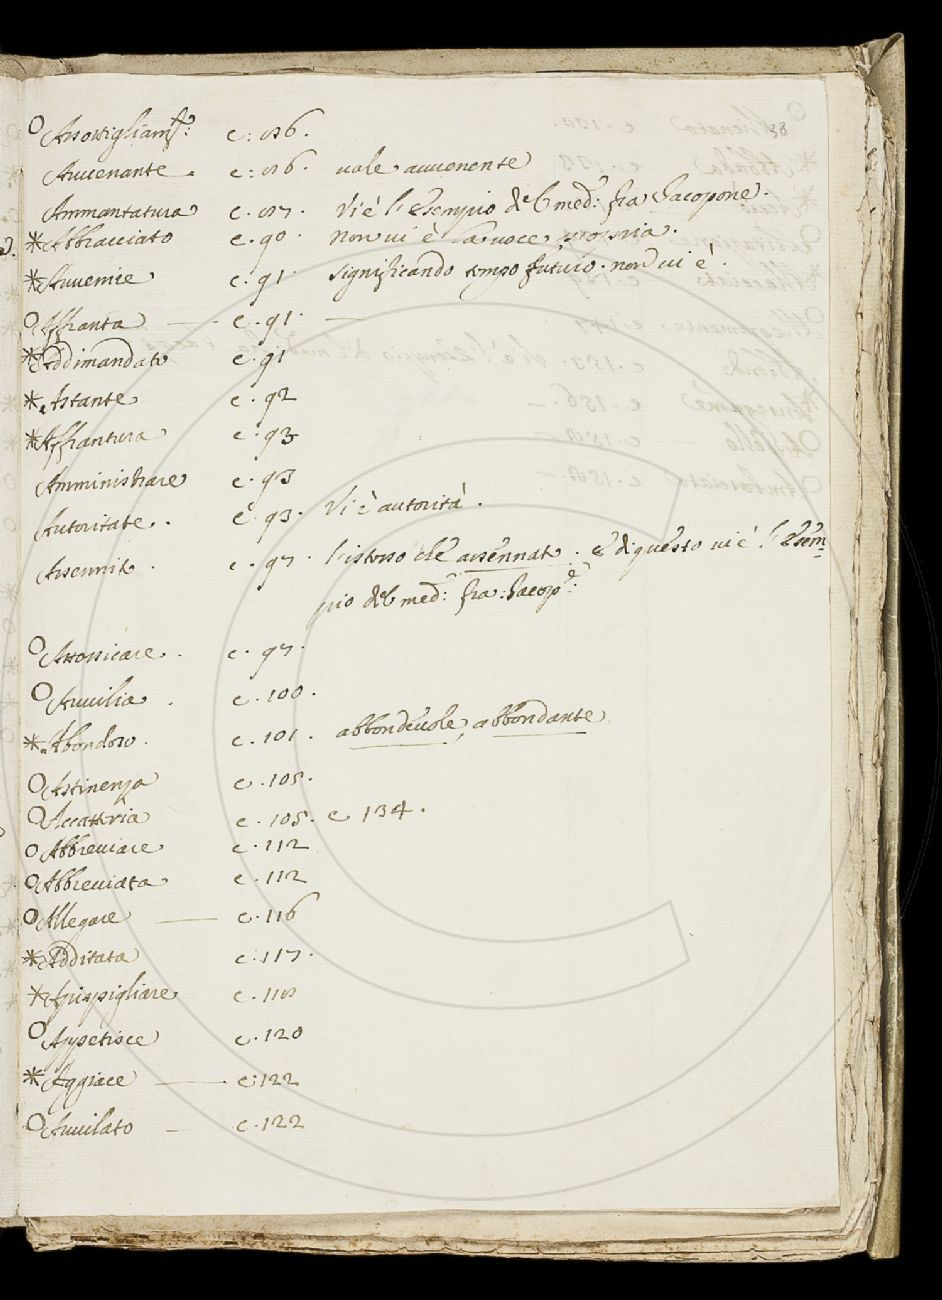 38
○ Assottigliam.to: c: 86.
Avvenante. c: 86. vale avvenente
Ammantatura c. 87. Vi è l'Esempio del med: fra Jacopone.
* Abbracciato c. 90. non vi è la voce propria.
* Avvenire c. 91 significando tempo futuro. non vi è.
○ Affranta — c. 91. —
* Addimandato c. 91
* Astante c. 92
* Affrantura c. 93
Amministrare c. 93
Autoritate.. c. 93. Vi è autorità.
Assennit. c. 97. l'istesso che assennat. e di questo vi è l'Esem=
pio del med: fra: Jacop.e:
○ Attossicare. c. 97.
○ Auuilia. c. 100.
* Abondoso. c. 101. abbondeuole, abbondante
○ Astinenza c. 105.
○ Accattaria c. 105. e 134.
○ Abbreuiare c. 112
○ Abbreuiata c. 112
○ Allegare — c. 116
* Additata c. 117.
* Apipigliare c. 118
○ Appetisce c. 120
* Aggiace — c: 122
○ Auuilato — c. 122